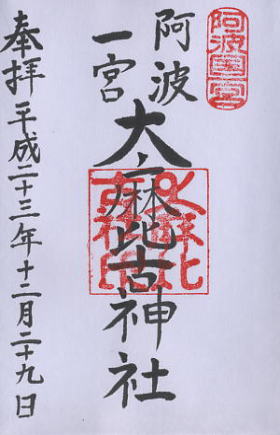 阿波國一宮
阿波
一宮
大麻比古神社
奉拝
平成二十三年十二月二十九日